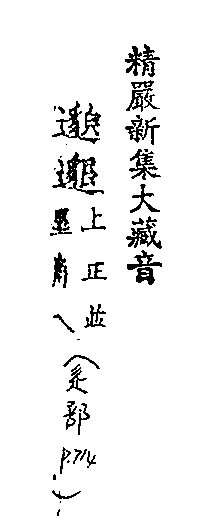 精嚴新集大藏音
上正並
墨角
（辵部 p.714）